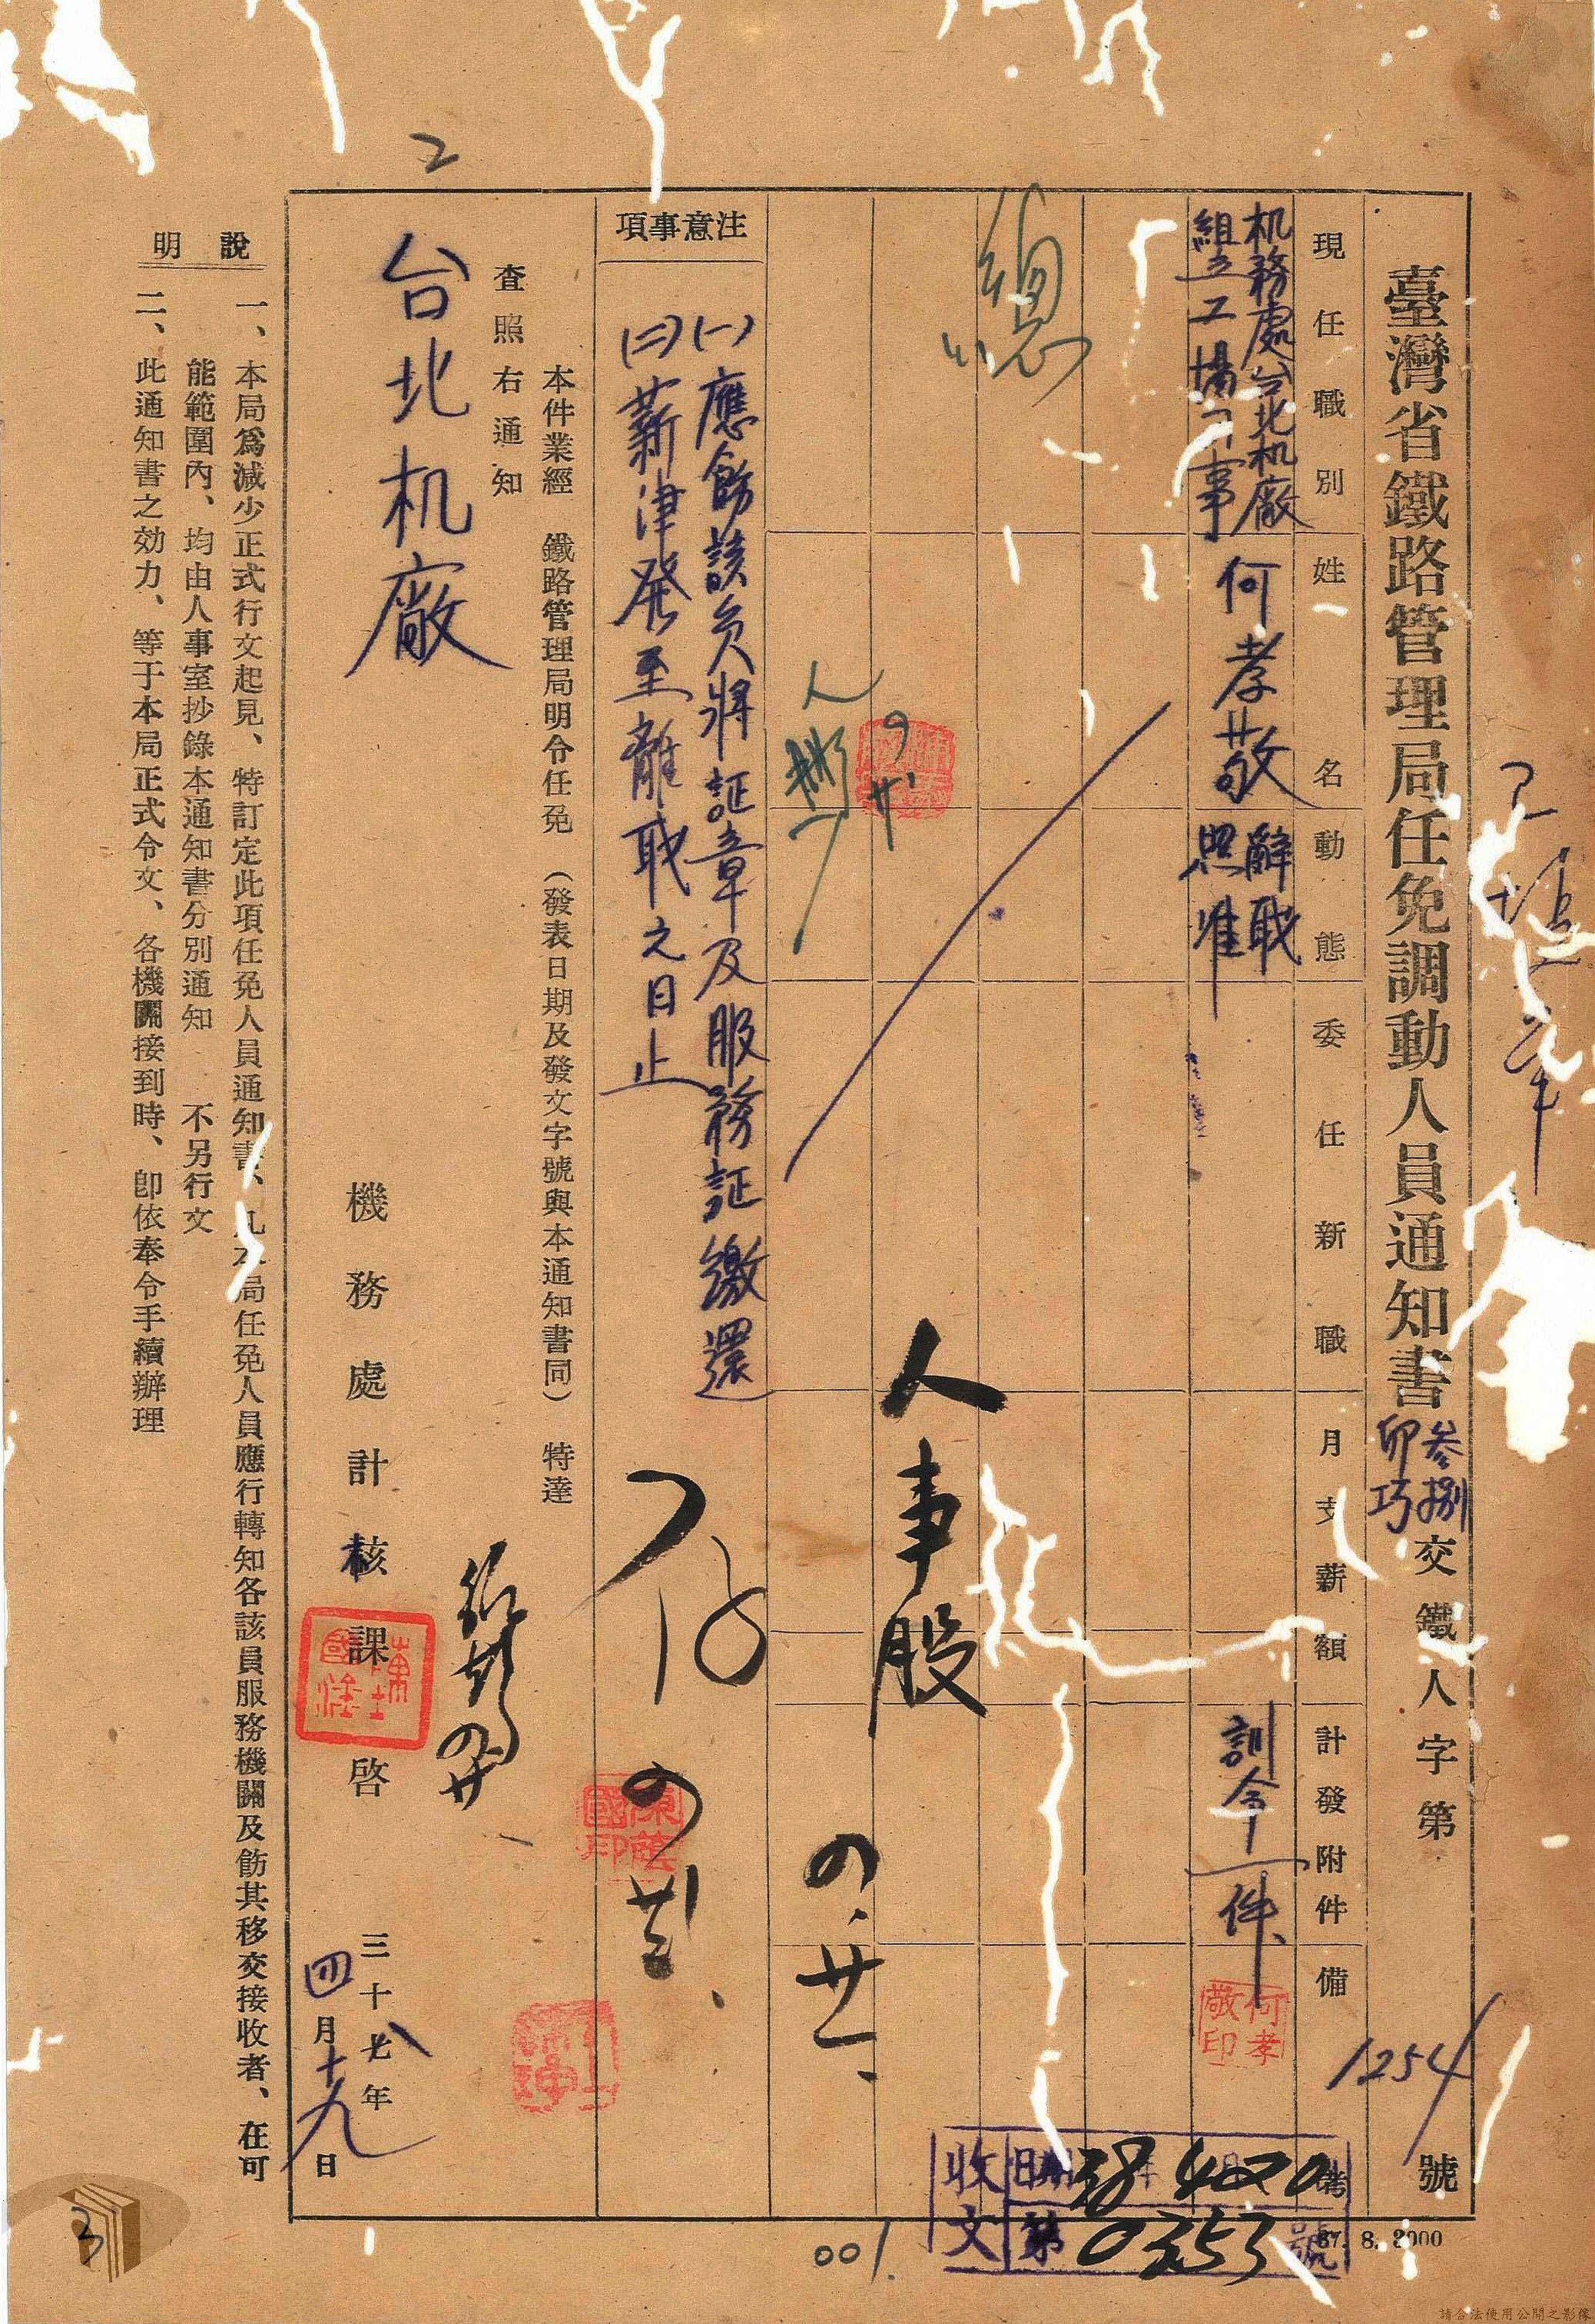 臺灣省鐵路管理局任免調動人員通知書
參捌
卯巧
交鐵人字第1254號
現任職別
姓名
動態
委任新職
月支薪額
計發附件
備考
机務處台北机廠
組立工場司事
何孝敬
辭職
照准
訓令一件
何孝敬印
總
人事股
四.廿一.
注意事項
(一)應飭該員將証章及服務証繳還
(二)薪津發至離职之日止
本件業經 鐵路管理局明令任免(發表日期及發文字號與本通知書同) 特達
查照右通知
台北机廠
機務處計核課啓
三十八年
四月十九日
說明
一、本局爲減少正式行文起見、特訂定此項任免人員通知書、凡本局任免人員應行轉知各該員服務機關及飭其移交接收者、在可
能範圍內、均由人事室抄錄本通知書分別通知 不另行文
二、此通知書之効力、等于本局正式令文、各機關接到時、卽依奉令手續辦理
收文
日期38年4月20日
第0353號
37. 8. 2000
001.
2
3
請合法使用公開之影像